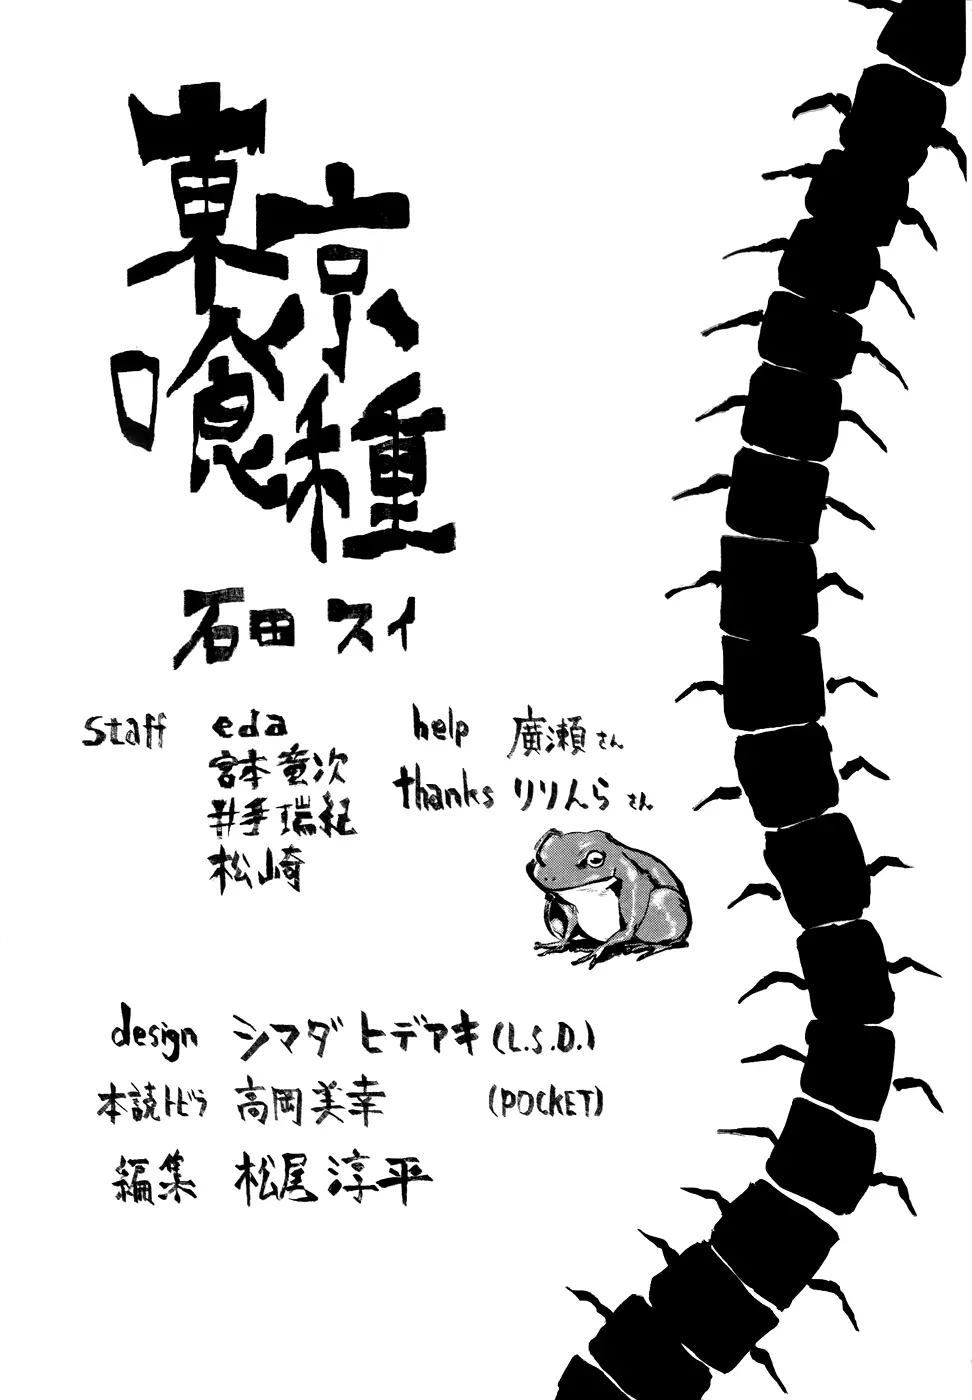 東京
喰種
石田 スイ
staff eda
宮本竜次
井手瑞紀
松崎
help 廣瀬さん
thanks りりんらさん
design シマダヒデアキ(L.S.D.)
本読トビラ 高岡美幸 (POCKET)
編集 松尾淳平